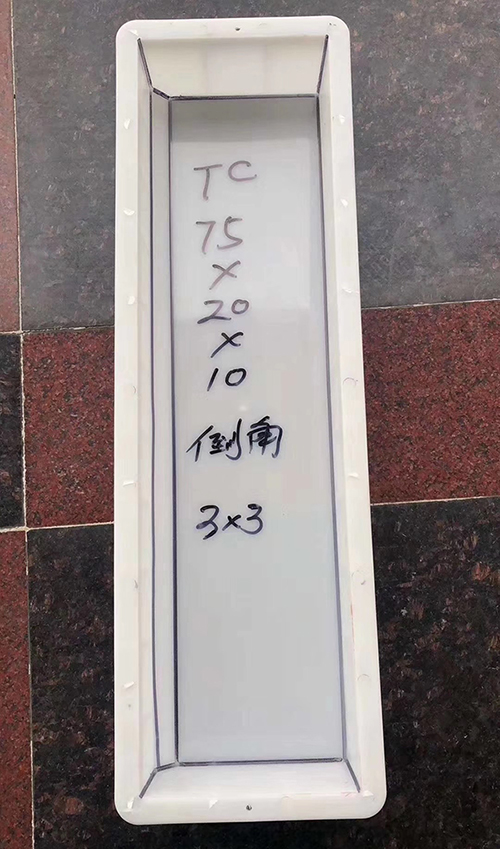 TC
75
×
20
×
10
倒角
3×3